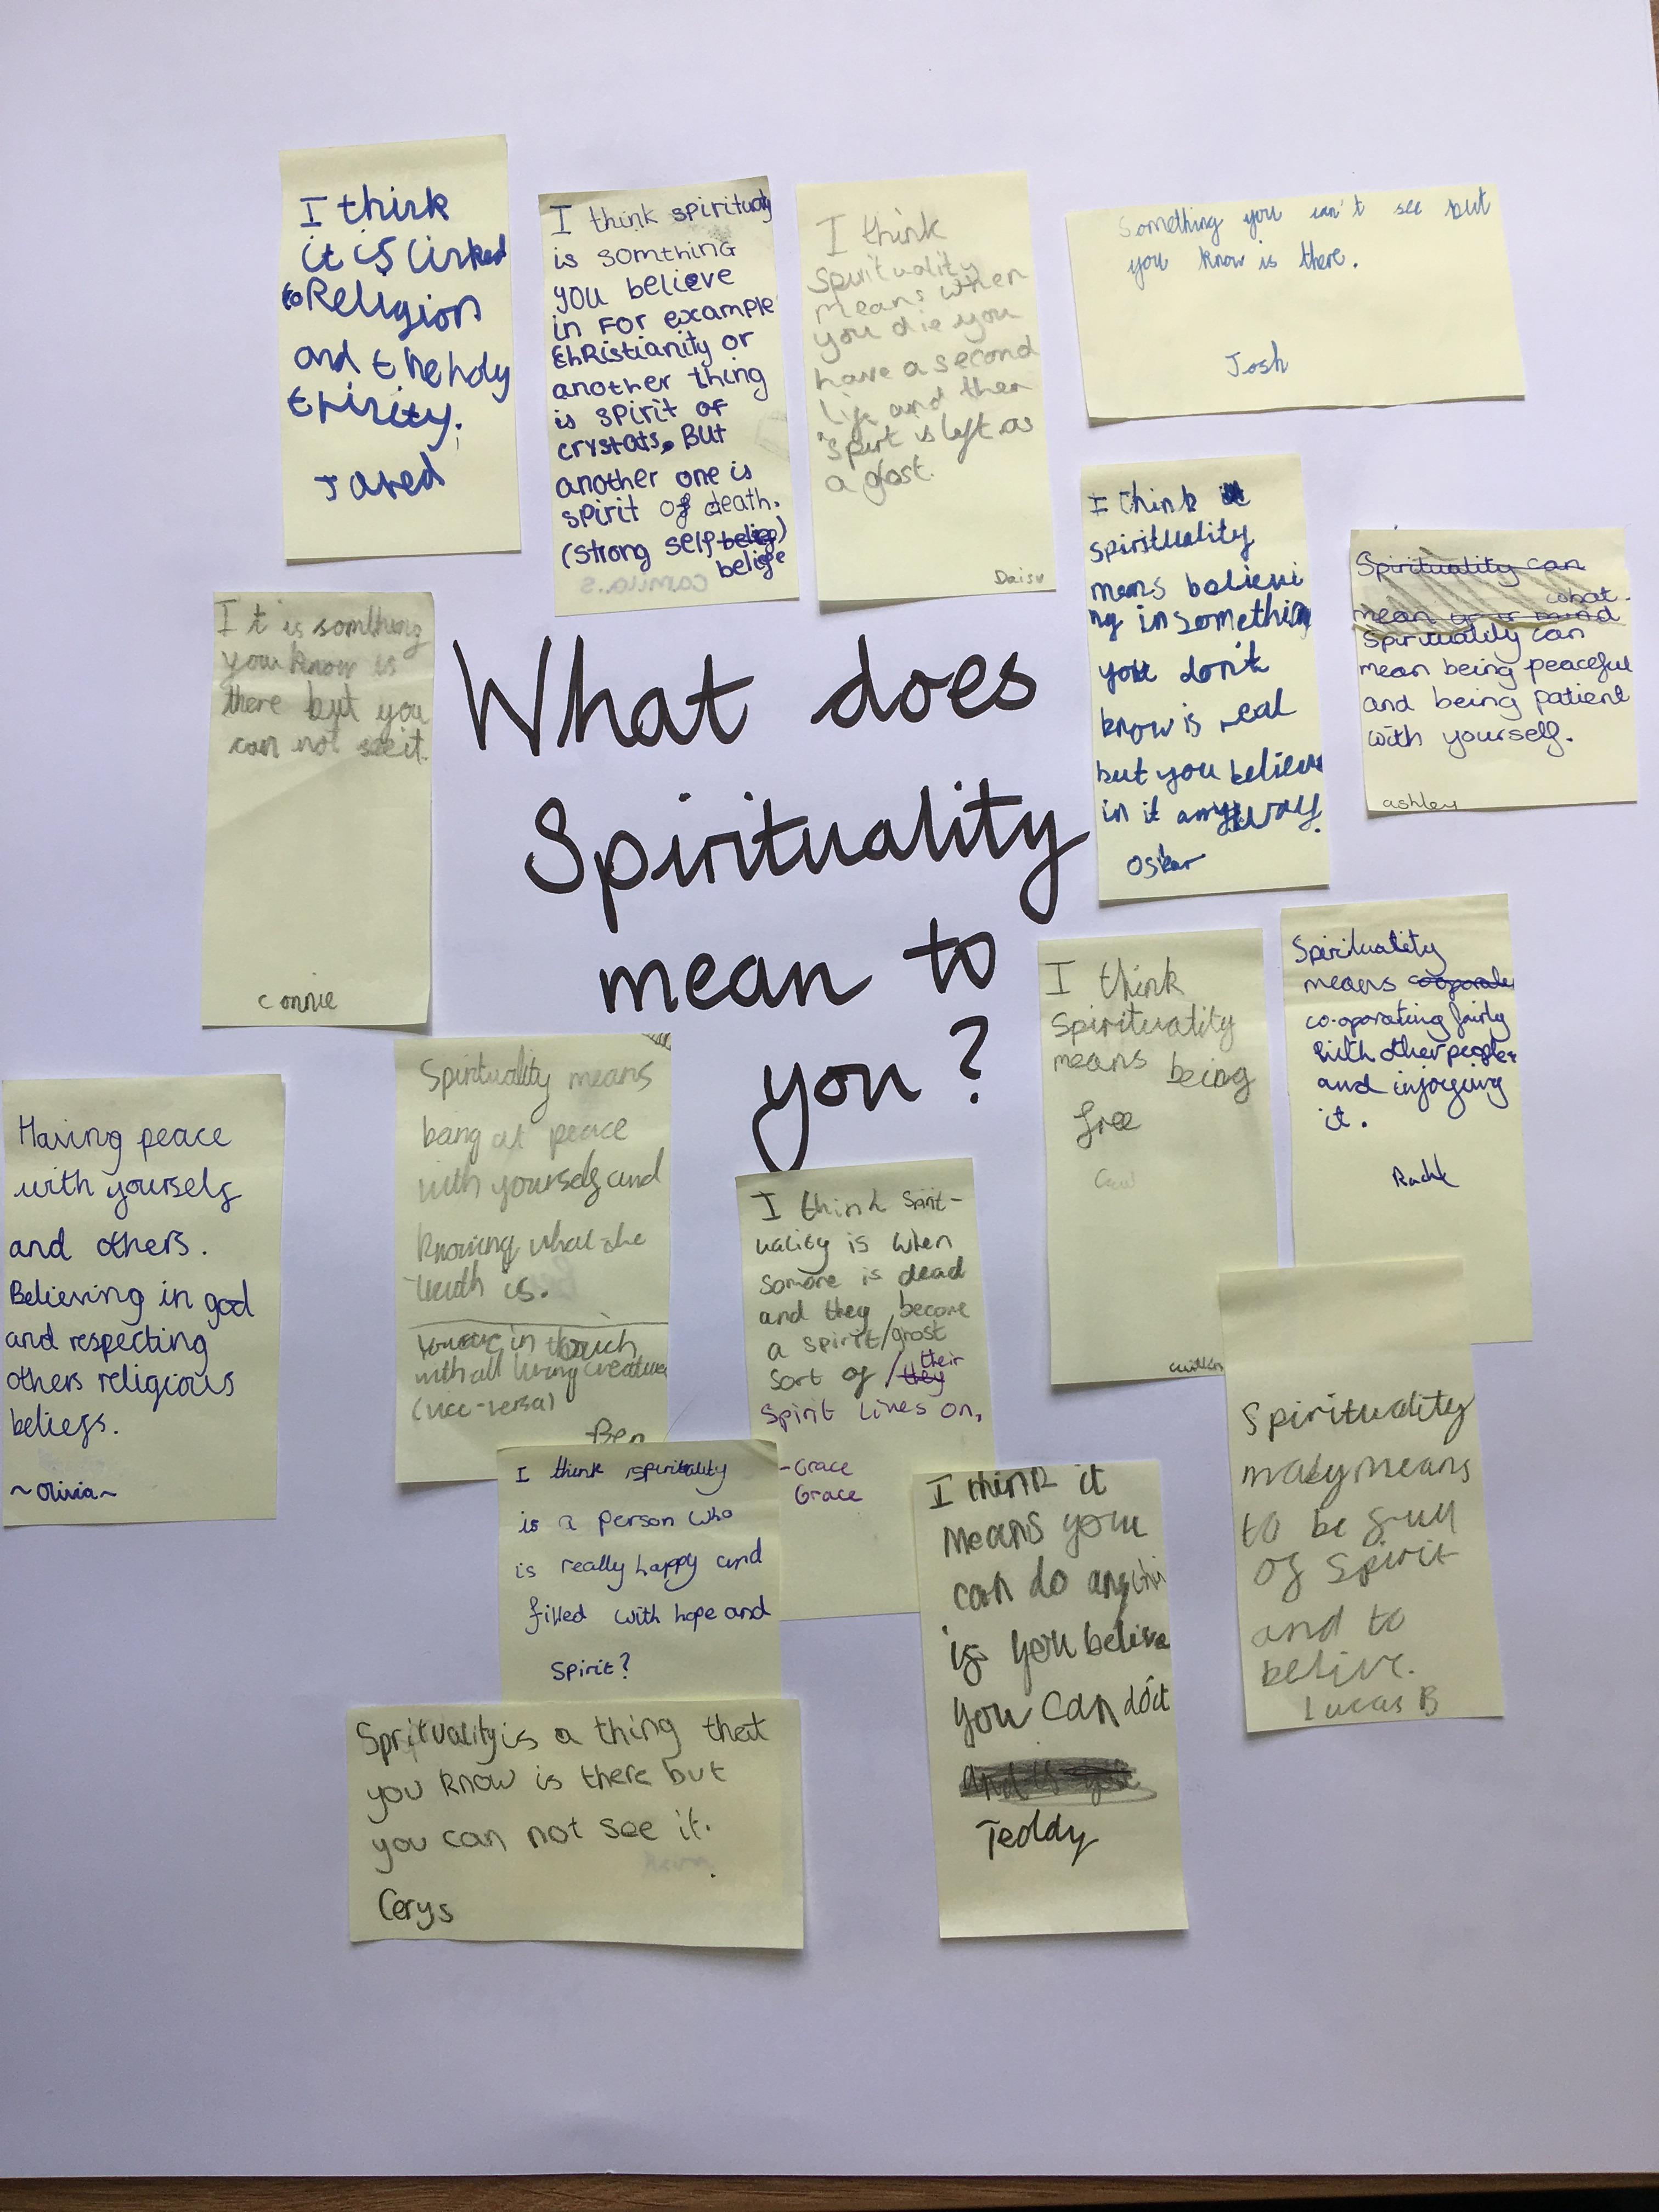 I think
it is linked
to Religion
and the holy
trinity.
Jared
I think spirituality
is somthing
you believe
in For example
ChRistianity or
another thing
is spirit of
crystats. But
another one is
spirit of death.
(strong self belief)
belige
camila.s
I think
Spirituality
means when
you die you
have a second
life and then
spirt is left as
a ghost.
Daisy
Something you can't see but
you know is there.
Josh
I think
spirituality
means believi
ng in something
you don't
know is real
but you believe
in it anyway.
Oskar
Spirituality can
what
mean your mind
Spirituality can
mean being peaceful
and being patient
with yourself.
ashley
It is somthing
you know is
there but you
can not see it.
Connie
What does
Spirituality
mean to
you?
I think
Spirituality
means being
free
Spirituality
means cooporate
co-oporating fairly
with other people
and injoying
it.
Having peace
with yourself
and others.
Believing in god
and respecting
others religious
beliefs.
~Olivia~
Spirituality means
bang at peace
with yourself and
knowing what the
truth is.
You are in touch
with all living creatures
(vice-versa)
Ben
I think Spirit-
uality is when
somone is dead
and they become
a spirit/ghost
sort of / they
their
spirit lives on.
-Grace
Grace
I think spirituality
is a person who
is really happy and
filled with hope and
spirit?
I think it
means you
can do anythi
if you belive
you can do it
and if you
Teddy
Spirituality
means
to be full
of spirit
and to
belive.
Lucas B
Sprituality is a thing that
you know is there but
you can not see it.
Cerys